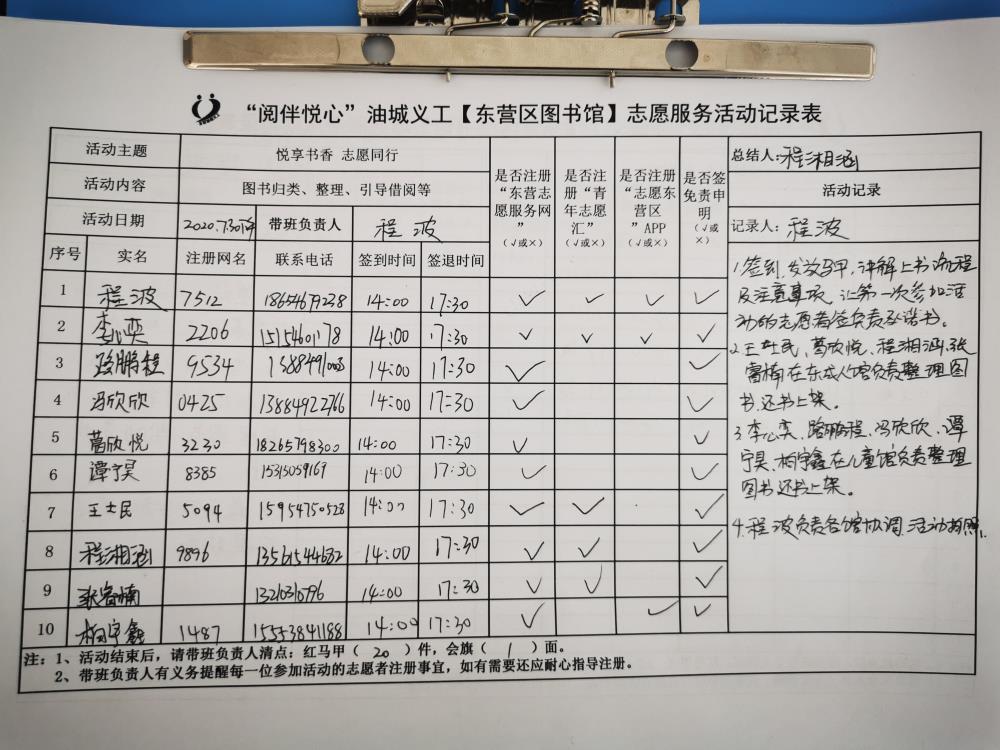 “阅伴悦心”油城义工【东营区图书馆】志愿服务活动记录表
活动主题 悦享书香 志愿同行 是否注册“东营志愿服务网”（√或×） 是否注册“青年志愿汇”（√或×） 是否注册“志愿东营区”APP（√或×） 是否签免责申明（√或×） 总结人：程湘涵
活动内容 图书归类、整理、引导借阅等 活动记录
活动日期 2020.7.30 带班负责人 程波 记录人：程波
序号 实名 注册网名 联系电话 签到时间 签退时间
1 程波 7512 18654679238 14:00 17:30 √ √ √ √
2 李心奕 2206 15154601178 14:00 17:30 √ √ √ √
3 路鹏程 9534 14:00 17:30 √ √
4 冯欣欣 0425 13884922766 14:00 17:30 √ √
5 葛欣悦 3230 18265798300 14:00 17:30 √ √
6 谭宁昊 8385 15315059169 14:00 17:30 √ √
7 王士民 5094 15954750528 14:00 17:30 √ √ √
8 程湘涵 9896 13561544682 14:00 17:30 √ √ √
9 13210310796 14:00 17:30 √ √ √
10 柏宇鑫 1487 15553841188 14:00 17:30 √ √ √
1.签到,发放马甲,讲解上书流程
及注意事项,让第一次参加活
动的志愿者签免责承诺书。
2.王士民、葛欣悦、程湘涵、张
富楠在东成人馆负责整理图
书,还书上架。
3.李心奕、路鹏程、冯欣欣、谭
宁昊、柏宇鑫在儿童馆负责整理
图书还书上架。
4.程波负责各馆协调,活动拍照.
注：1、活动结束后，请带班负责人清点：红马甲（20）件，会旗（1）面。
2、带班负责人有义务提醒每一位参加活动的志愿者注册事宜，如有需要还应耐心指导注册。